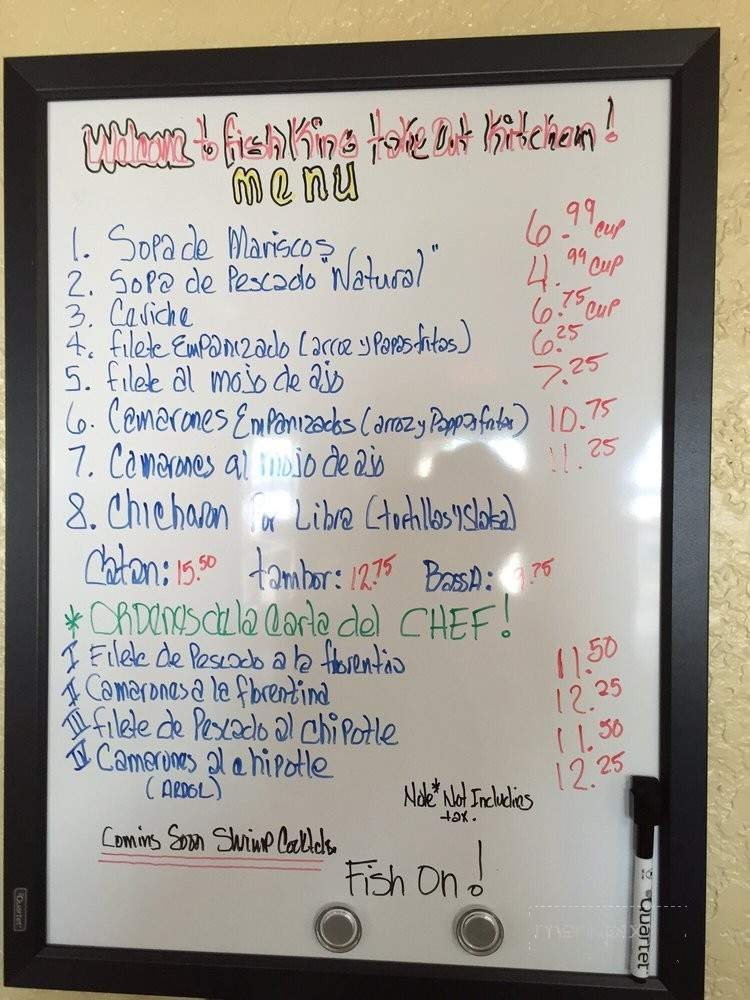 Welcome to fish King take Out Kitchen!
menu
1. Sopa de Mariscos 6.99 cup
2. Sopa de Pescado "Natural" 4.99 cup
3. Caviche 6.75 cup
4. filete Empanizado (arroz y Papas fritas) 6.25
5. filete al mojo de ajo 7.25
6. Camarones Empanizados (arroz y Pappas fritas) 10.75
7. Camarones al mojo de ajo 11.25
8. Chicharon Por Libra (tortillas y Slaba)
Catan: 15.50 tambor: 12.75 BassA: .75
* ORDENES de la Carta del CHEF!
I Filete de Pescado a la florentina 11.50
II Camarones a la florentina 12.25
III filete de Pescado al Chipotle 11.50
IV Camarones al chipotle 12.25
(ARBOL)
Note* Not Includes
tax.
Coming Soon Shrimp Cocktels.
Fish On!
Quartet
Quartet